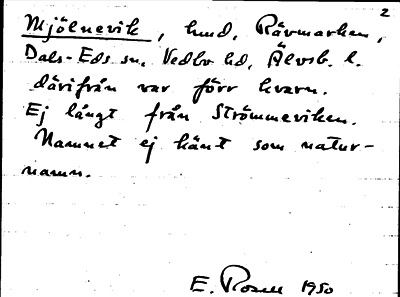 2
Mjölnevik, hmd, Rävmarken,
Dals-Eds sn, Vedbo hd, Älvsb. l.
därifrån var förr kvarn.
Ej långt från Strömmeviken.
Namnet ej känt som natur-
namn.
E. Rosell 1950